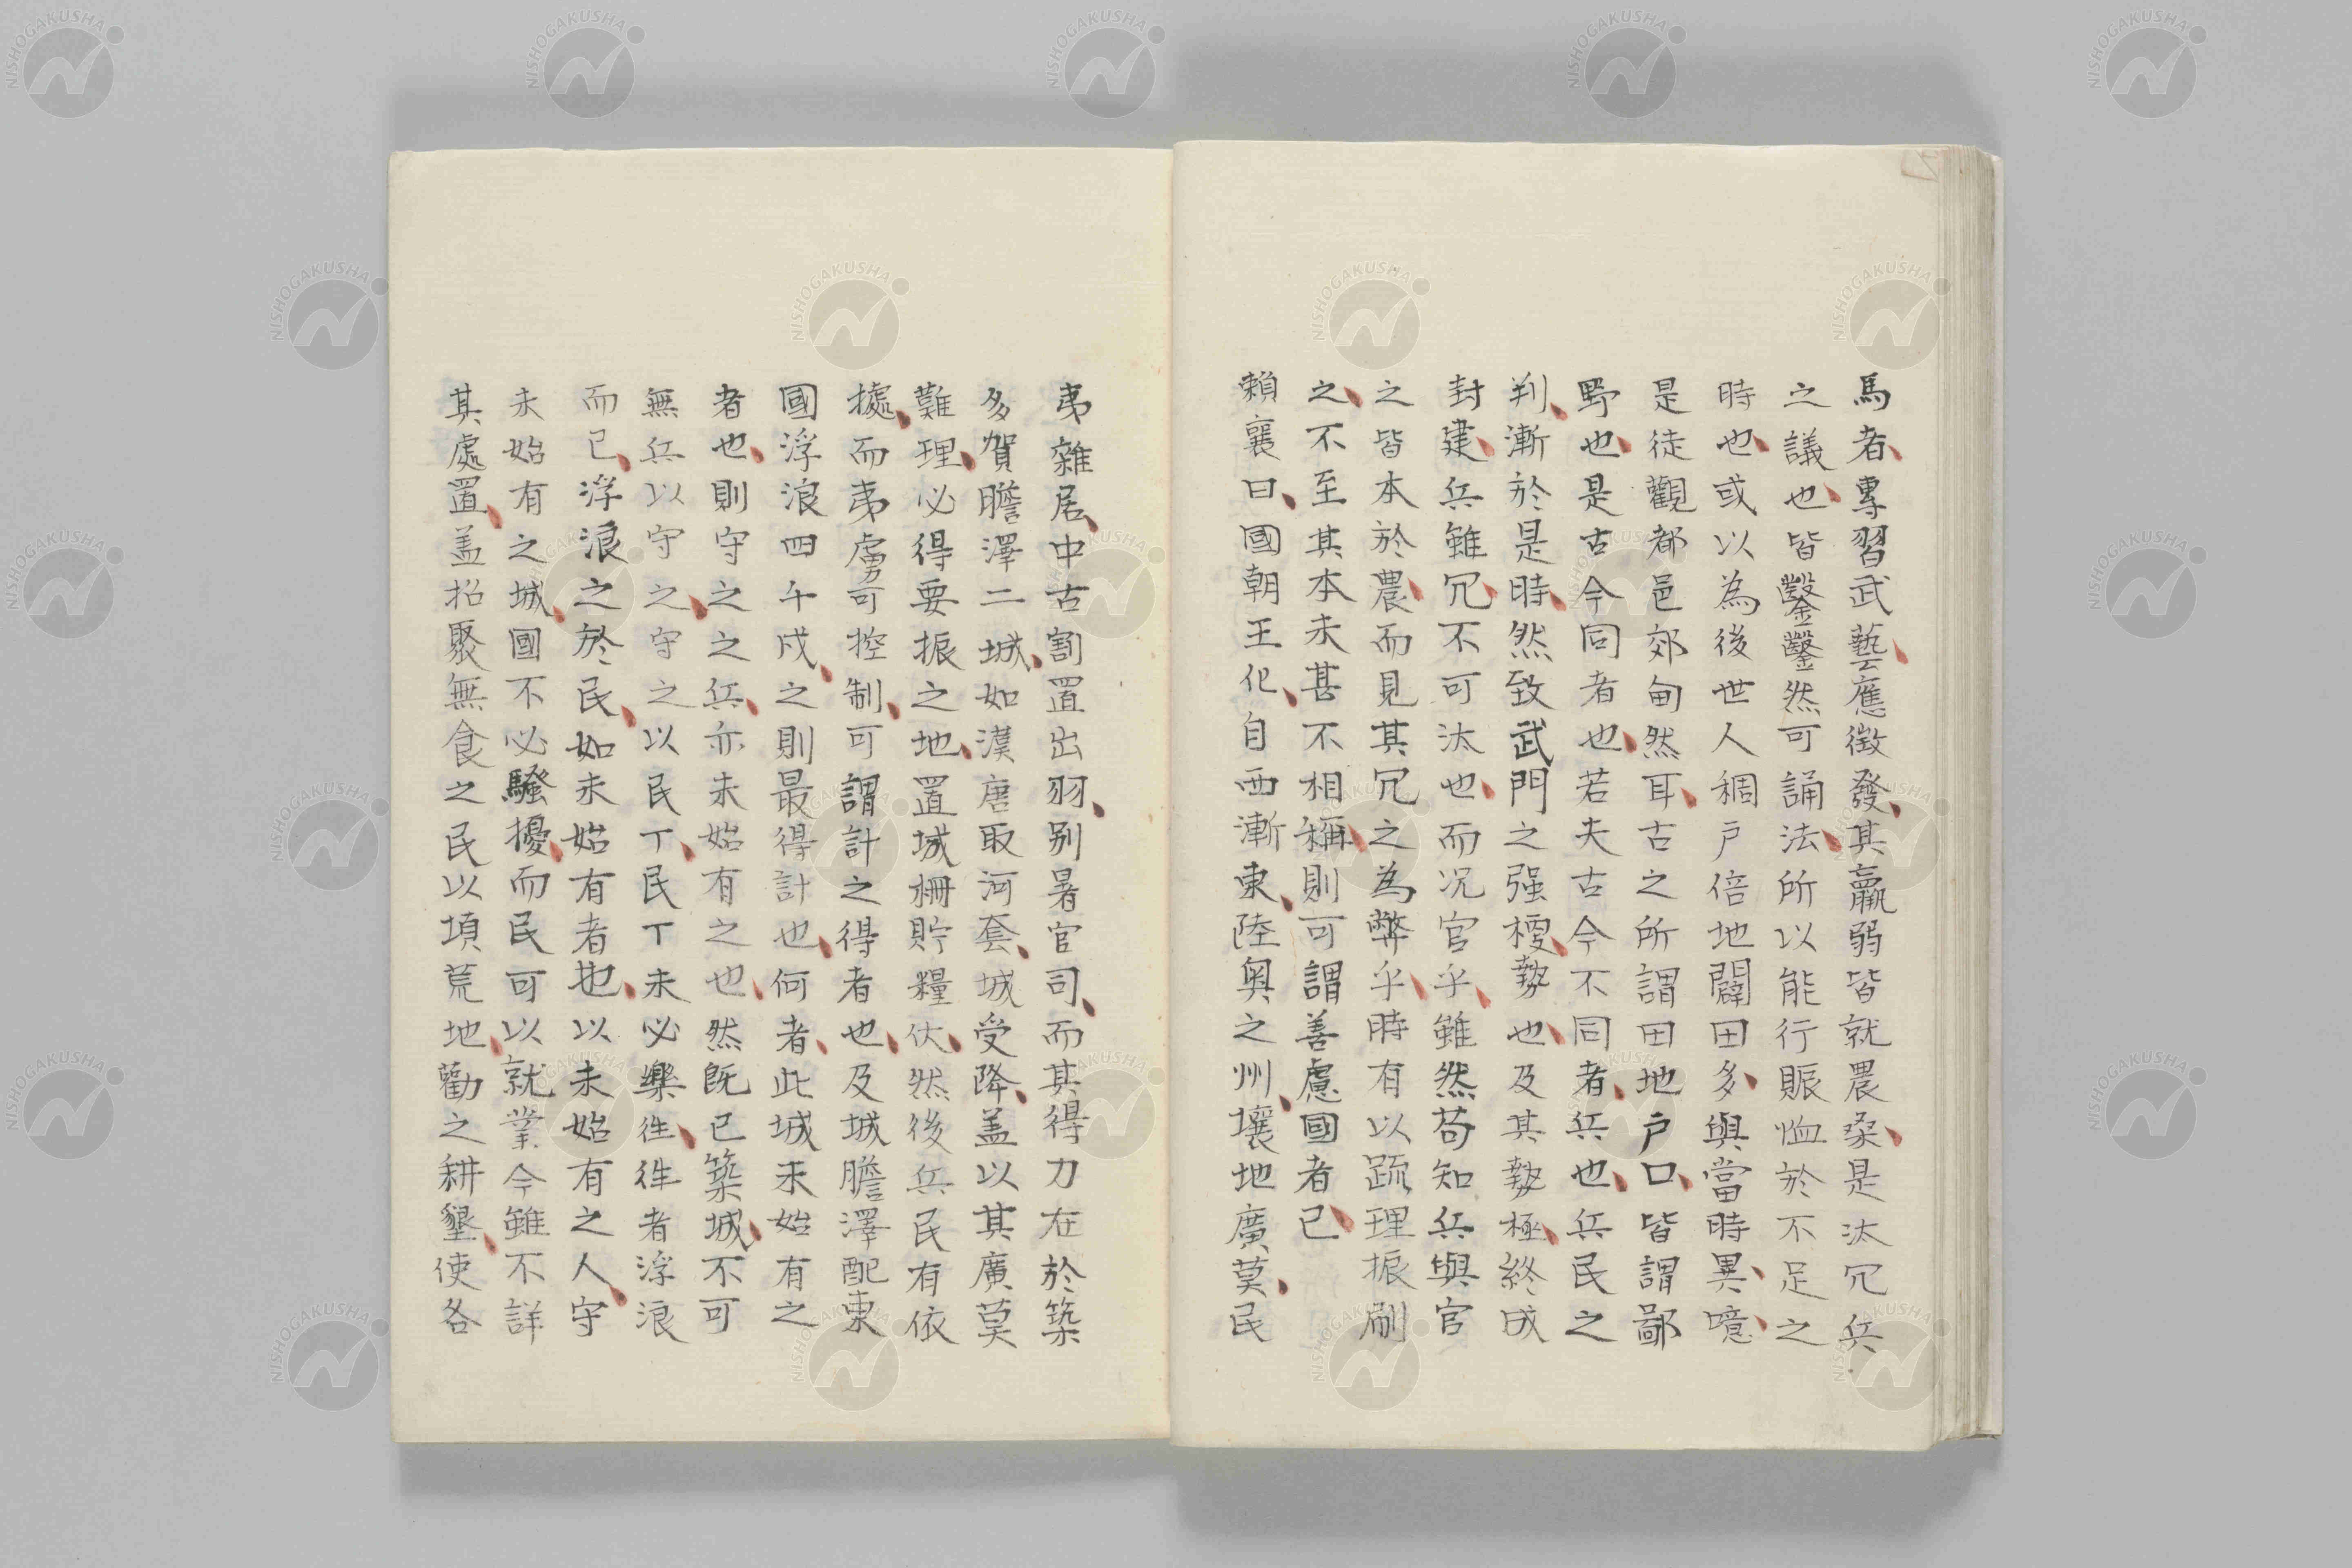 馬者專習武藝應徵發其羸弱皆就農桑是汰冗兵
之議也皆鑿鑿然可誦法所以能行賑恤於不足之
時也或以為後世人稠戶倍地闢田多與當時異噫
是徒觀都邑郊甸然耳古之所謂田地戶口皆謂鄙
野也是古今同者也若夫古今不同者兵也兵民之
判漸於是時然致武門之强桜勢也及其勢極終成
封建兵雖冗不可汰也而況官乎雖然苟知兵與官
之皆本於農而見其冗之為弊乎時有以疏理振刷
之不至其本末甚不相稱則可謂善慮國者已
賴襄曰國朝王化自西漸東陸奧之州壤地廣莫民
夷雜居中古割置出羽別署官司而其得力在於築
多賀膽澤二城如漢唐取河套城受降蓋以其廣莫
難理必得要振之地置城柵貯糧仗然後兵民有依
據而夷虜可控制可謂計之得者也及城膽澤配東
國浮浪四千戍之則最得計也何者此城未始有之
者也則守之之兵亦未始有之也然既已築城不可
無兵以守之守之以民丁民丁未必樂徃徃者浮浪
而已浮浪之於民如未始有者也以未始有之人守
未始有之城國不必騷擾而民可以就業今雖不詳
其處置蓋招聚無食之民以項荒地勸之耕墾使各